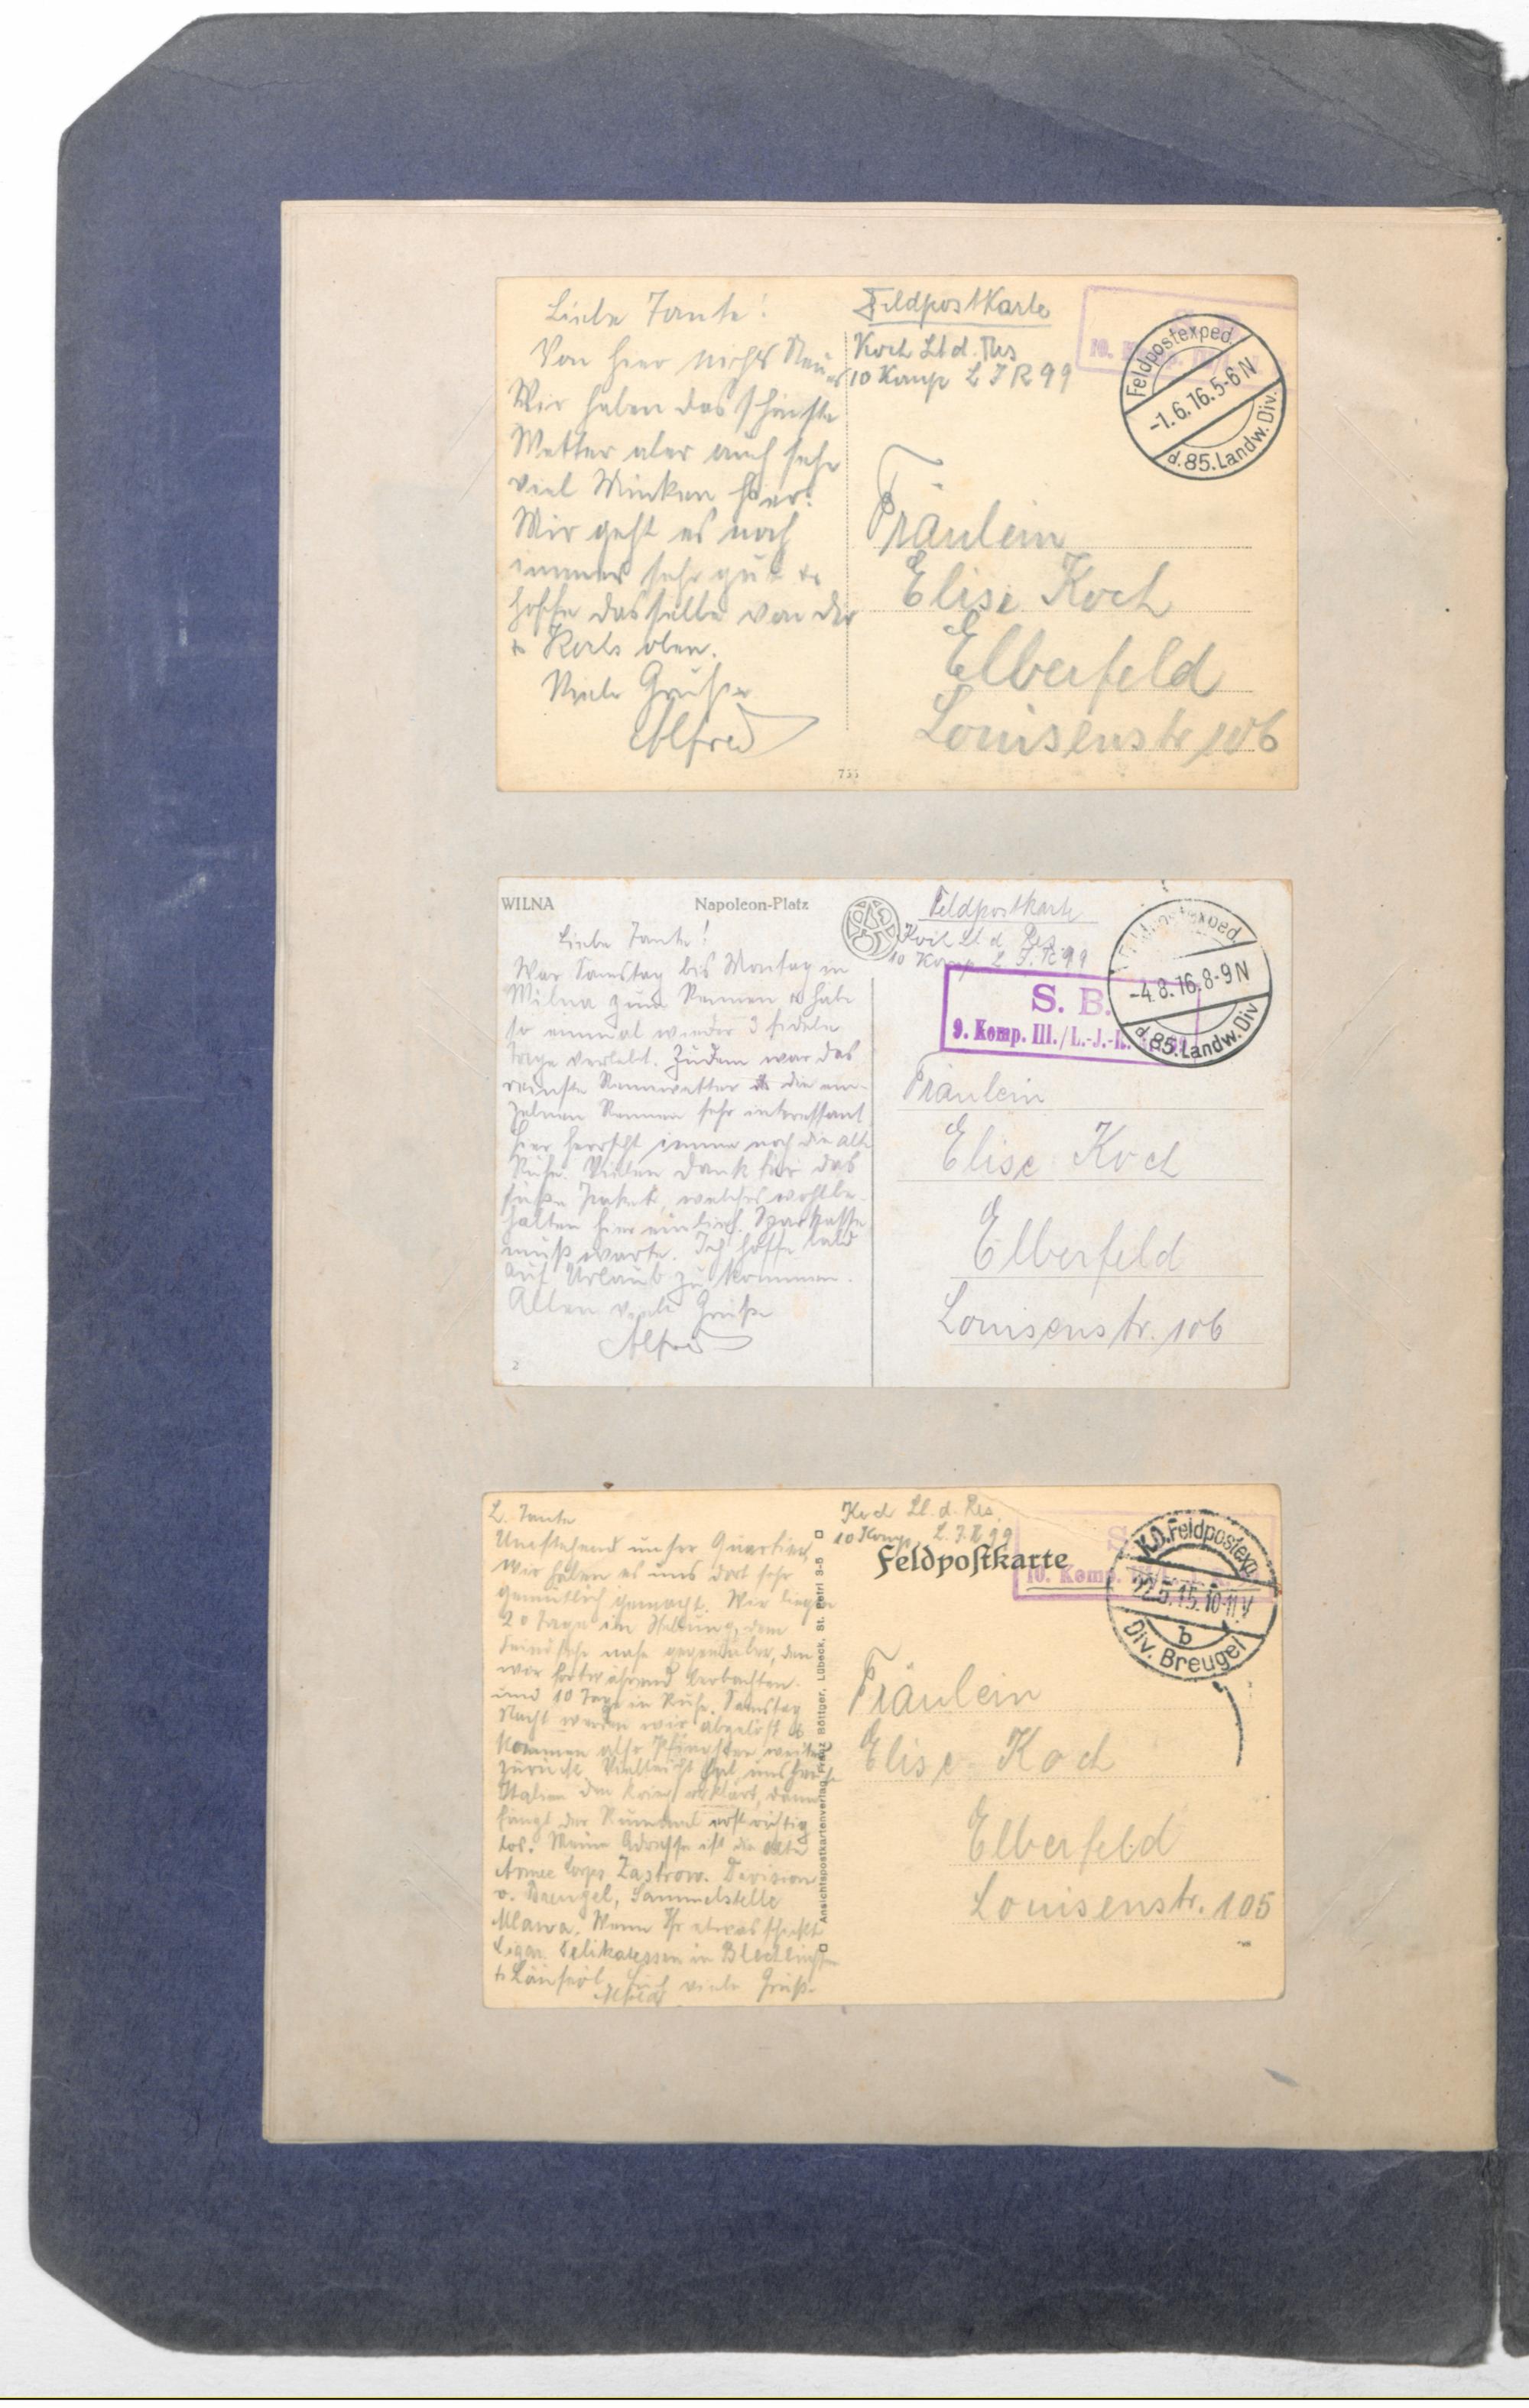 Liebe Tante!
Von hier nichts Neues
Wir haben das schönste
Wetter aber auch sehr
viel Mücken hier.
Mir geht es noch
immer sehr gut u.
hoffe dasselbe von der
u Karls oben.
Viele Grüße
Alfred
Feldpostkarte
Koch Lt d. Res
10 Komp L I R 99
10.
Feldpostexped.
-1.6.16.5-6N
d.85.Landw.Div.
Fräulein
Elise Koch
Elberfeld
Louisenstr 106
755
WILNA Napoleon-Platz
Liebe Tante!
War Samstag bis Montag in
Wilna zum Rennen u habe
so einmal wieder 3 fidele
Tage verlebt. Zudem war das
reinste Rennwetter u die ein-
zelnen Rennen sehr interessant
hier herrscht immer noch die alte
Ruhe. Vielen Dank für das
süße Paket, welches wohlbe-
halten hier einlief. Sparkasse
muß warte. Ich hoffe bald
auf Urlaub zu kommen.
Allen viele Grüße
Alfred
2
Feldpostkarte
Koch Lt d Res.
10 Komp L I. R 99
S. B.
9. Komp. III./L.-J.-R.
Feldpostexped.
-4.8.16.8-9N
d.85.Landw.Div.
Fräulein
Elise Koch
Elberfeld
Louisenstr. 106
L. Tante
Umstehend unser Quartier,
wir haben es uns dort sehr
gemütlich gemacht. Wir liegen
20 Tage in Stellung, dem
Feinde sehr nahe gegenüber, den
wir fortwährend beobachten.
und 10 Tage in Ruhe. Samstag
Nacht werden wir abgelöst u
kommen also Pfingsten weiter
zurück. Vielleicht hat uns heute
Italien den Krieg erklärt, dann
fängt der Rummel erst richtig
los. Meine Adresse ist die alte
Armee Corps Zastrow. Division
v. Breugel, Sammelstelle
Mlawa. Wenn Ihr etwas schickt
Cigar. Delikatessen in Blechbüchsen
u Läuseöl. Euch viele Grüße
Alfred
Ansichtspostkartenverlag Franz Böttger, Lübeck, St. Petri 3-5
Koch Lt. d. Res.
10 Komp. L. I. R 99
Feldpostkarte
S.
10. Komp. III/L.
K.D.Feldpostexp.
22.5.15.10-11V
b
Div. Breugel
Fräulein
Elise Koch
Elberfeld
Louisenstr. 105